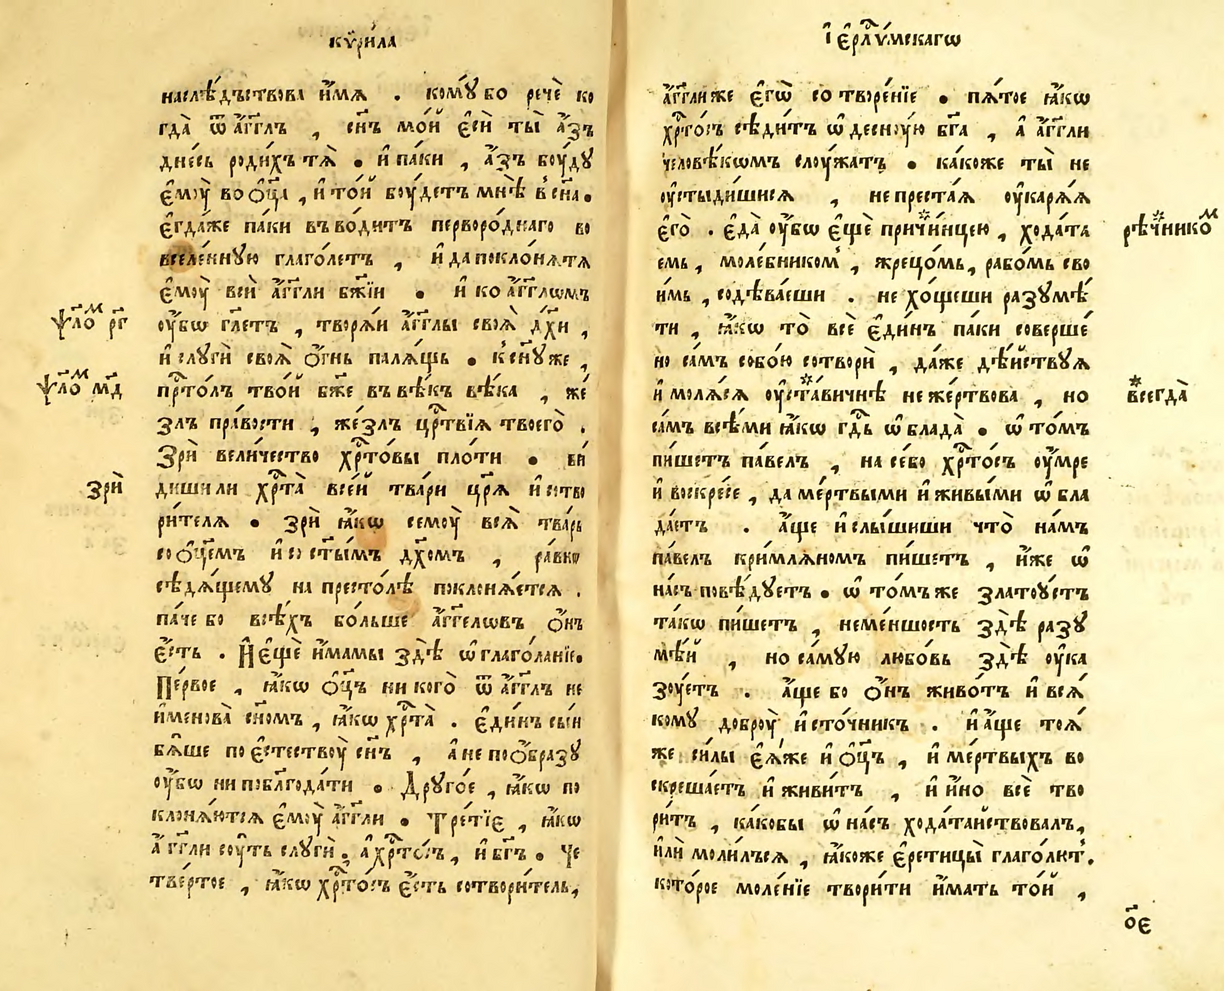 кѷри́ла
наслѣ́дъствова и҆́мѧ . комꙋ́ бо речѐ ко
гда̀ ѿ а҆́г҃глъ , сн҃ъ мо́й є҆сѝ ты̀ а҆́зъ
дне́сь роди́хъ тѧ̀ . и҆ па́ки , а҆́зъ бꙋ́дꙋ
є҆мꙋ̀ во ѻ҆ц҃а , и҆ то́й бꙋ́детъ мнѣ̀ в̾ сн҃а .
є҆гда́же па́ки въво́дитъ перворо́днаго во
вселе́ннꙋю глаго́летъ , и҆ да поклонѧ́тсѧ
є҆мꙋ̀ всѝ а҆́г҃гли бж҃їи . и҆ ко а҆́г҃глѡмъ
ᲂу҆́бѡ гл҃етъ , творѧ́и а҆́г҃глы своѧ̀ дх҃и ,
ѱало́м рг҃
и҆ слꙋгѝ своѧ̀ ѻ҆́гнь палѧ́щь . к̾ сн҃ꙋ же ,
прⷭ҇то́лъ тво́й бж҃е въ вѣ́къ вѣ́ка , же́
ѱало́м мд҃
злъ пра́вости , же́злъ црⷭ҇твїѧ твоего̀ .
Зрѝ вели́чество хрⷭ҇то́вы пло́ти . ви́
диши ли хрⷭ҇та̀ все́й тва́ри цр҃ѧ и҆ сотво
зрѝ
ри́телѧ . зрѝ ꙗ҆́кѡ семꙋ̀ всѧ̀ тва́рь
со ѻ҆ц҃емъ и҆ со ст҃ымъ дх҃омъ , ра́вно
сѣдѧ́щемꙋ на престо́лѣ поклонѧ́етсѧ .
па́че бо всѣ́хъ бо́льше а҆́г҃гелѡвъ ѻ҆́нъ
є҆́сть . И҆ є҆щѐ и҆́мамы здѣ̀ ѡ҆ глаго́ланїе .
Пе́рвое , ꙗ҆́кѡ ѻ҆ц҃ъ ни кого̀ ѿ а҆́г҃глъ не
и҆менова̀ сн҃омъ , ꙗ҆́кѡ хрⷭ҇та̀ . є҆ди́нъ сы́й
бѧ́ше по є҆стествꙋ̀ сн҃ъ , а҆ не по ѻ҆́бразꙋ
ᲂу҆́бѡ ни по блг҃ода́ти . Дрꙋго́е , ꙗ҆́кѡ по
клонѧ́ютсѧ є҆мꙋ̀ а҆́г҃гли . Тре́тїе , ꙗ҆́кѡ
а҆́г҃гли сꙋ́ть слꙋгѝ , а҆ хрⷭ҇то́съ , и҆ бг҃ъ . Че
тве́ртое , ꙗ҆́кѡ хрⷭ҇то́съ є҆́сть сотвори́тель ,
і҆ є҆рⷭ҇лѵ́мскагѡ
а҆́г҃гли же є҆гѡ̀ со творе́нїе . пѧ́тое ꙗ҆́кѡ
хрⷭ҇то́съ сѣди́тъ ѡ҆ деснꙋ́ю бг҃а , а҆ а҆́г҃гли
человѣ́кѡмъ слꙋ́жатъ . ка́коже ты̀ не
ᲂу҆стыди́шисѧ , не преста́ѧ ᲂу҆карѧ́ѧ
є҆го̀ . є҆да̀ ᲂу҆́бѡ є҆щѐ причи́нцею , хода́та
рѣ́чнико́м
емь , моле́бником̾ , жрецо́мь , рабо́мь сво
и́мь , содѣва́еши . не хо́щеши разꙋмѣ́
ти , ꙗ҆́кѡ то̀ всѐ є҆ди́нъ па́ки соверше́
но са́мъ собо́ю сотворѝ , да́же дѣ́йствꙋѧ
и҆ молѧ́сѧ ᲂу҆ста́вичнѣ не же́ртвова , но
всегда̀
са́мъ всѣ́ми ꙗ҆́кѡ гдⷭ҇ь ѡ҆блада̀ . ѡ҆ то́мъ
пи́шетъ па́велъ , на се́бо хрⷭ҇то́съ ᲂу҆́мре
и҆ воскре́се , да ме́ртвыми и҆ живы́ми ѡ҆бла
да́етъ . а҆́ще и҆ слы́шиши что̀ на́мъ
па́велъ кримлѧ́номъ пи́шетъ , и҆́же ѡ҆
на́съ повѣ́дꙋетъ . ѡ҆ то́мъ же златоꙋ́стъ
та́кѡ пи́шетъ , неме́ншость здѣ̀ разꙋ
мѣ́й , но са́мꙋю любо́вь здѣ̀ ᲂу҆ка
зꙋ́етъ . а҆́ще бо ѻ҆́нъ живо́тъ и҆ всѧ́
комꙋ добрꙋ̀ и҆сто́чникъ . и҆ а҆́ще тоѧ́
же си́лы є҆ѧ́же и҆ ѻ҆ц҃ъ , и҆ ме́ртвыхъ во
скреша́етъ и҆ живи́тъ , и҆ и҆́но всѐ тво
ри́тъ , ка́кобы ѡ҆ на́съ хода́тайствовалъ ,
и҆лѝ моли́лъсѧ , ꙗ҆́коже є҆рети́цы глаго́лют̾ .
кото́рое моле́нїе твори́ти и҆́мать то́й ,
ѻ҃є